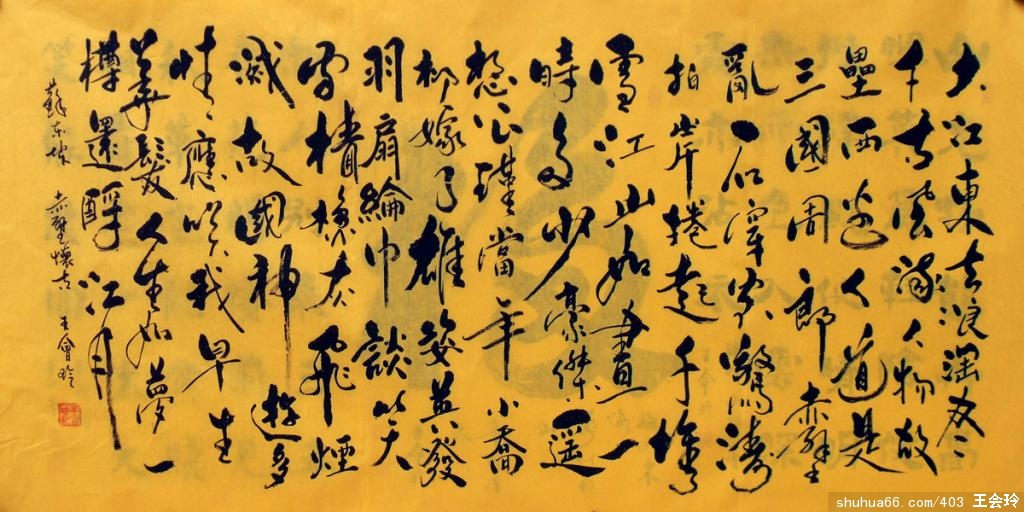 大江東去浪淘尽
千古風流人物故
壘西邊人道是
三國周郎赤壁
亂石穿空驚濤
拍岸捲起千堆
雪江山如畫一
時多少豪傑遥
想公瑾當年小喬
初嫁了雄姿英發
羽扇綸巾談笑
間檣櫓灰飛煙
滅故國神遊多
情應笑我早生
華髮人生如夢一
樽還酹江月
蘇東坡 赤壁懷古 王會玲
shuhua66.com/403 王会玲